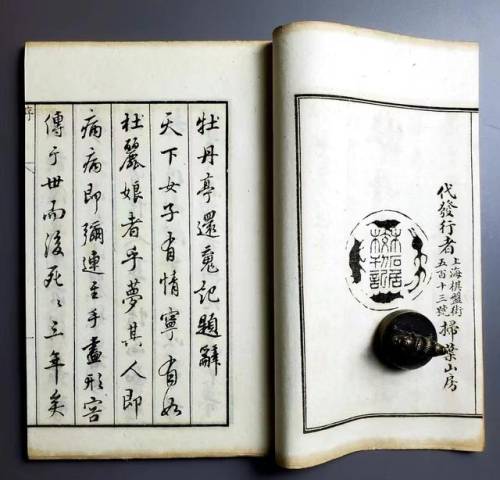 代發行者
上海棋盤街
五百十三號
掃葉山房
牡丹亭還䰟記題辭
天下女子有情寧有如
杜麗娘者乎夢其人即
病病即彌連至手畫形容
傳于世而後死〻三年矣
序